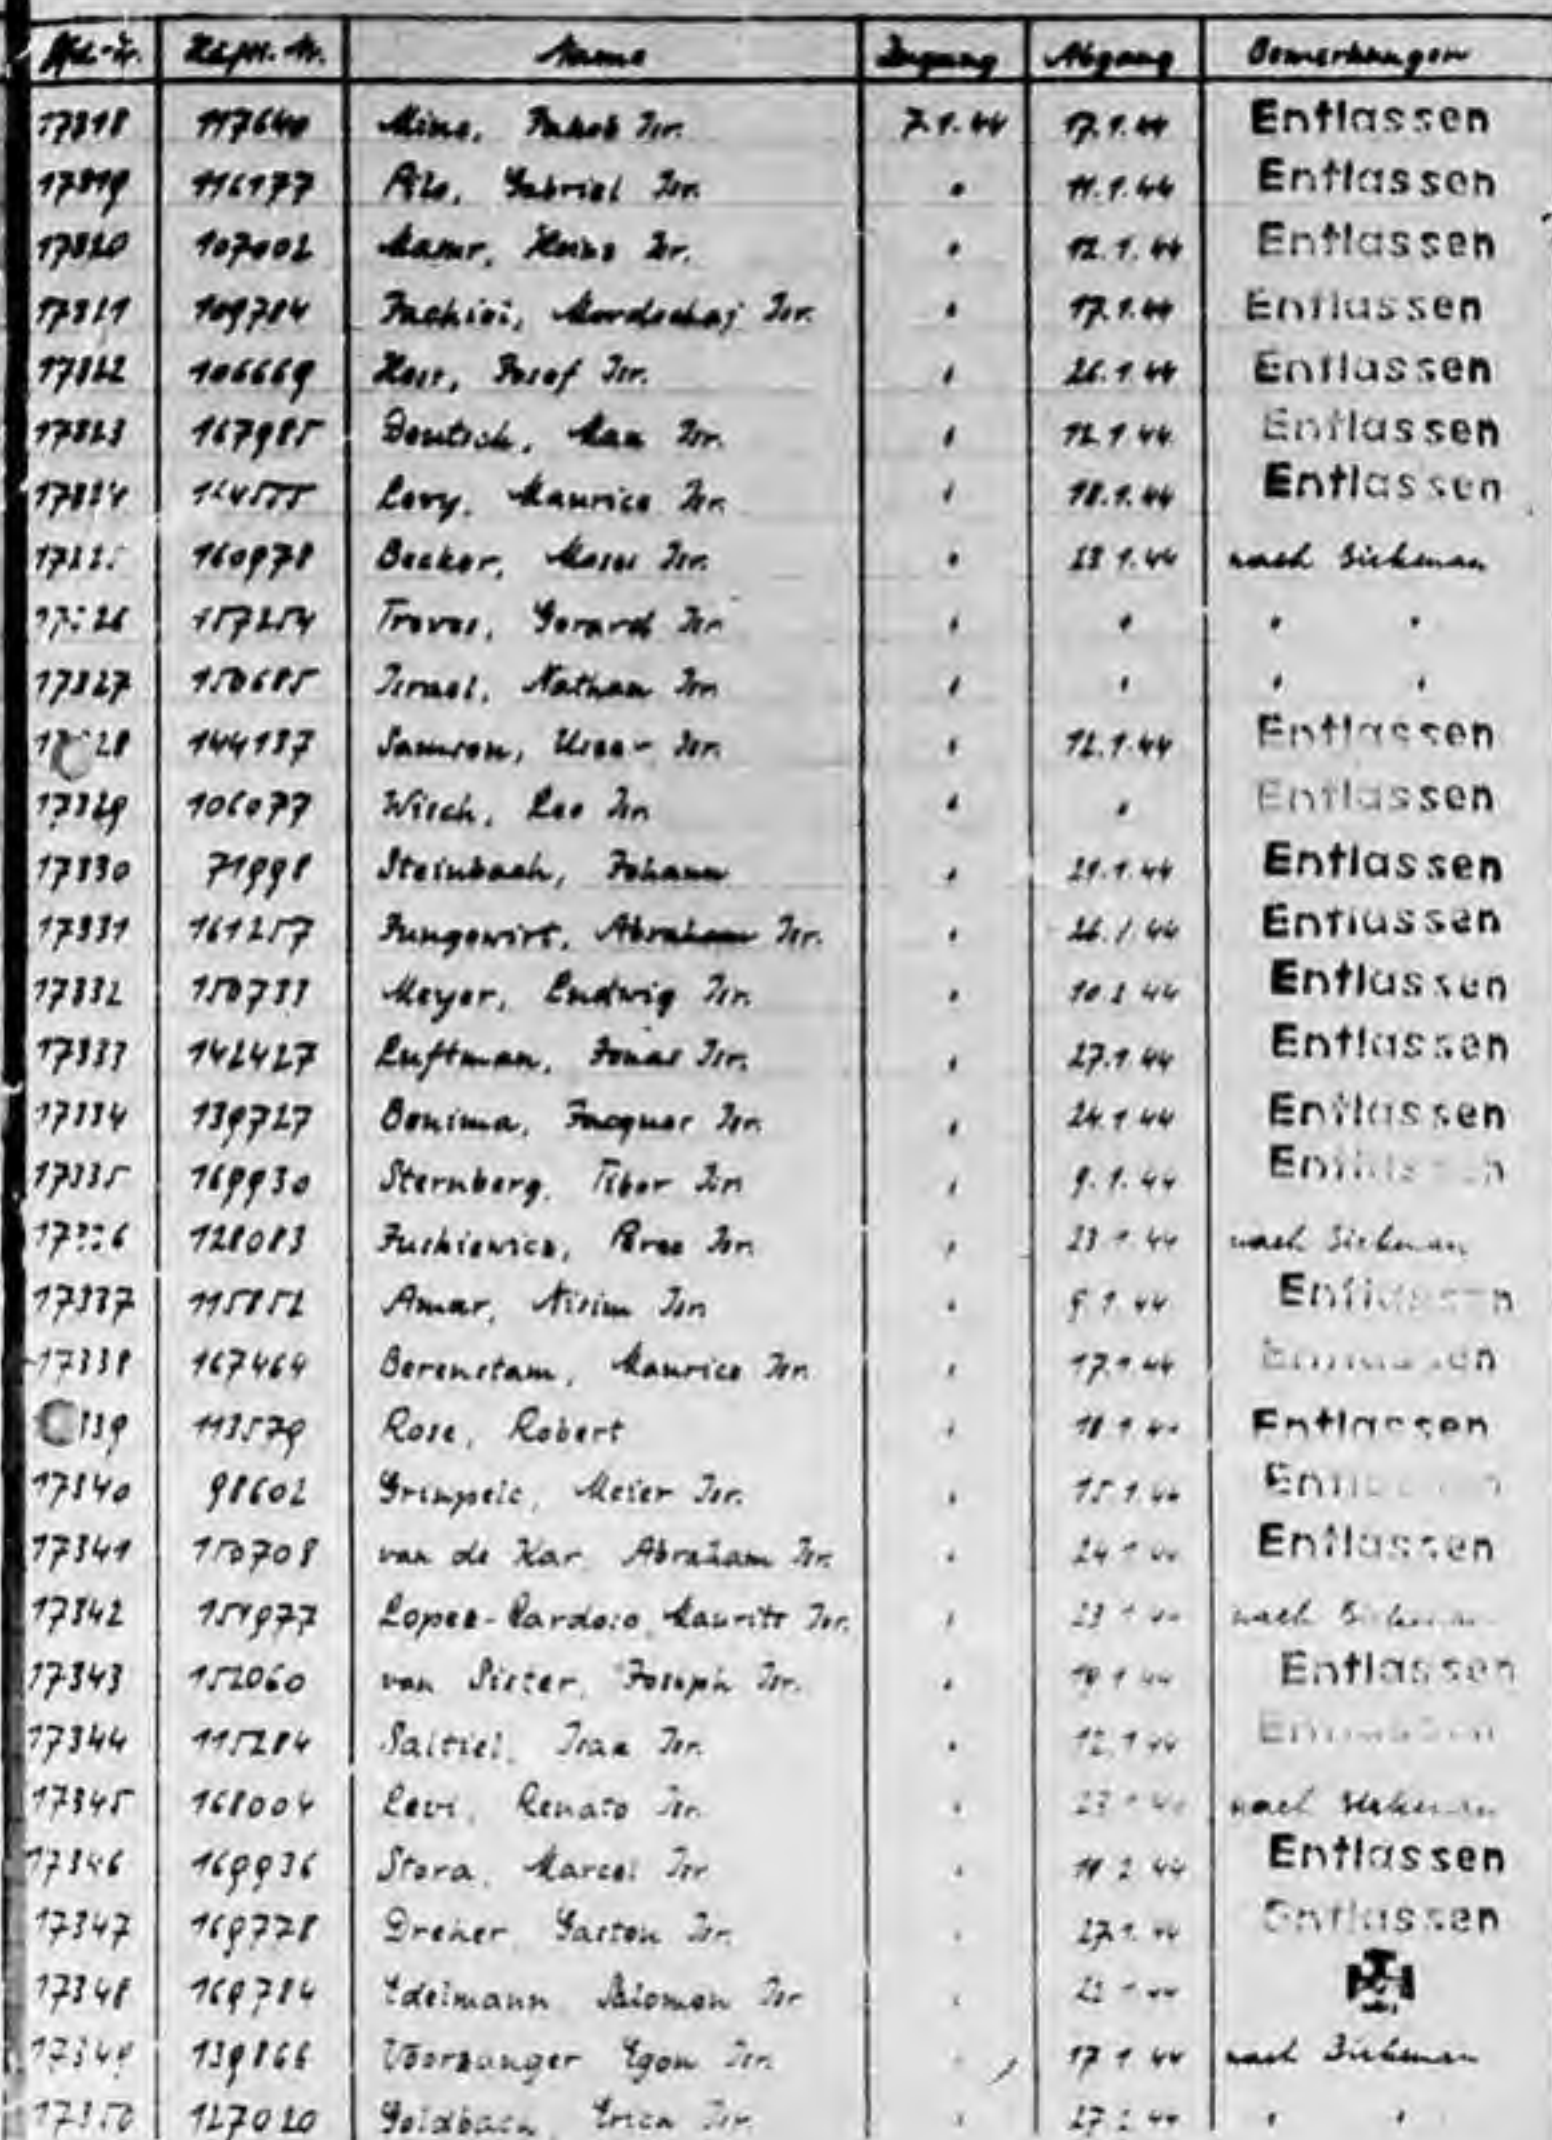 Lfd.-Nr. Häftl.-Nr. Name Zugang Abgang Bemerkungen
17318 117640 Mino, Jakob Isr. 7.1.44 17.1.44 Entlassen
17319 116177 Pilo, Gabriel Isr. " 11.1.44 Entlassen
17320 107002 Heinz Isr. " 12.1.44 Entlassen
17321 109784 Mordechaj Isr. " 17.1.44 Entlassen
17322 106669 Josef Isr. " 26.1.44 Entlassen
17323 167985 Deutsch, Max Isr. " 12.1.44 Entlassen
17324 124555 Levy, Maurice Isr. " 18.1.44 Entlassen
160978 Becker, Moses Isr. " 23.1.44 nach Birkenau
157254 Troves, Gerard Isr. " " " "
17327 150685 Israel, Nathan Isr. " " " "
144137 Samson, Isr. " 12.1.44 Entlassen
17329 106077 Wisch, Leo Isr. " " Entlassen
17330 71998 Steinbach, Johann " 21.1.44 Entlassen
17331 161257 Jungewirt, Abraham Isr. " 26.1.44 Entlassen
17332 150733 Meyer, Ludwig Isr. " 10.2.44 Entlassen
17333 142427 Luftman, Jonas Isr. " 27.1.44 Entlassen
17334 139727 Bonima, Jacques Isr. " 24.1.44 Entlassen
17335 169930 Sternberg, Tibor Isr. " 9.1.44 Entlassen
128083 Isr. " 23.1.44 nach Birkenau
17337 115852 Amar, Nisim Isr. " 9.1.44 Entlassen
17338 167464 Berenstam, Maurice Isr. " 17.1.44 Entlassen
339 113579 Rose, Robert " 18.1.44 Entlassen
17340 98602 Meier Isr. " 15.1.44 Entlassen
17341 150708 van de Kar, Abraham Isr. " 24.1.44 Entlassen
17342 151977 Lopes-Cardozo, Maurits Isr. " 23.1.44 nach Birkenau
17343 152060 van Joseph Isr. " 19.1.44 Entlassen
17344 115284 Saltiel, Isaa Isr. " 12.1.44 Entlassen
17345 168004 Levi, Renato Isr. " 23.1.44 nach Birkenau
17346 169936 Stora, Marcel Isr. " 2.44 Entlassen
17347 169778 Dreher, Gaston Isr. " 27.1.44 Entlassen
17348 169784 Edelmann, Salomon Isr. " 1.44
17349 139866 Voorzanger, Egon Isr. " 17.1.44 nach Birkenau
17350 127020 Goldbach, Isr. " 27.2.44 " "